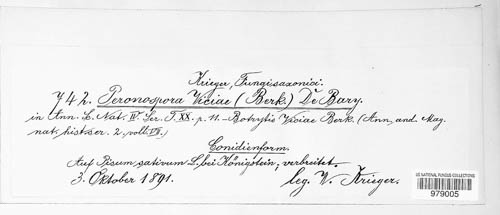 Krieger, Fungi saxonici.
742. Peronospora Viciae (Berk.) De Bary.
in Ann. S. Nat. IV Ser. T. XX. p. 11. – Botrytis Viciae Berk. (Ann. and Mag.
nat. hist. ser. 2. vol. VII.)
Conidienform.
Auf Pisum sativum L. bei Königstein, verbreitet.
3. Oktober 1891. leg. W. Krieger.
US NATIONAL FUNGUS COLLECTIONS
979005